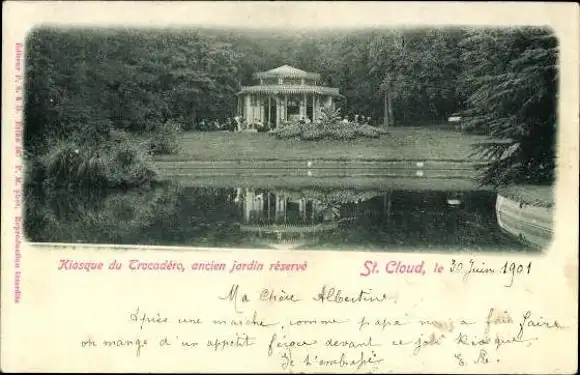 Kiosque du Trocadéro, ancien jardin réservé
St. Cloud, le 30 Juin 1901
Ma Chère Albertine
Après une marche, comme papa nous a fait faire
on mange d'un appétit féroce devant ce joli Kiosque,
Je t'embrasse
E. R.
Reproduction interdite